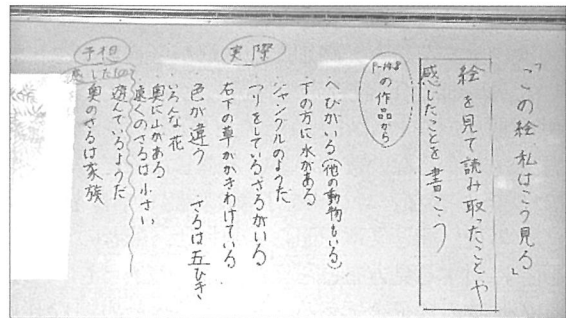 「この絵、私はこう見る」
絵を見て読み取ったことや
感じたことを書こう
P.148
の作品から
実際
・へびがいる(他の動物もいる)
・下の方に水がある
・ジャングルのようだ
・つりをしているさるがいる
・右下の草がかきわけている
・色が違う
・さるは五ひき
・いろんな花
・奥に山がある
・遠くのさるは小さい
予想
感じたもの
遊んでいるようだ
奥のさるは家族